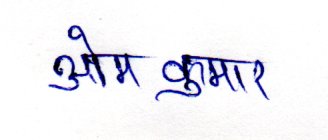 ओम कुमार